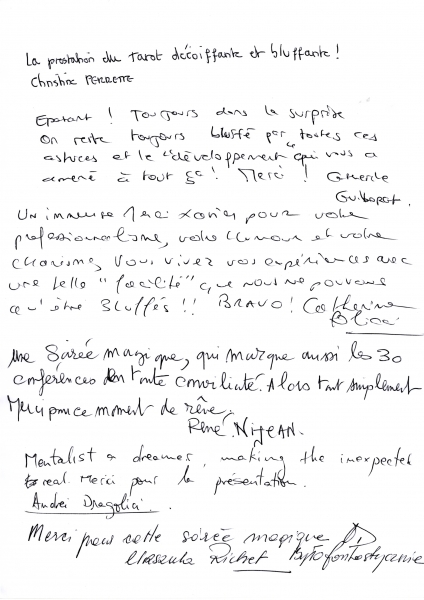 La prestation du Tarot décoiffante et bluffante !
Christine PERRETTE
Epatant ! Toujours dans la surprise
On reste toujours bluffé par toutes ces
astuces et le "développement" qui vous a
amené à tout ça ! Merci !
Un immense Merci Xavier pour votre
professionnalisme, votre humour et votre
charisme, vous vivez vos expériences avec
une telle "facilité" que nous ne pouvons
qu'être Bluffés !! BRAVO ! Catherine
Une Soirée magique, qui marque aussi les 30
conférences en toute convivialité. Alors tout simplement
Merci pour ce moment de rêve.
René NiJEAN.
Mentalist a dreamer, making the inexpected
real. Merci pour la présentation.
Andrei Dragolici.
Merci pour cette soirée magique
Richet